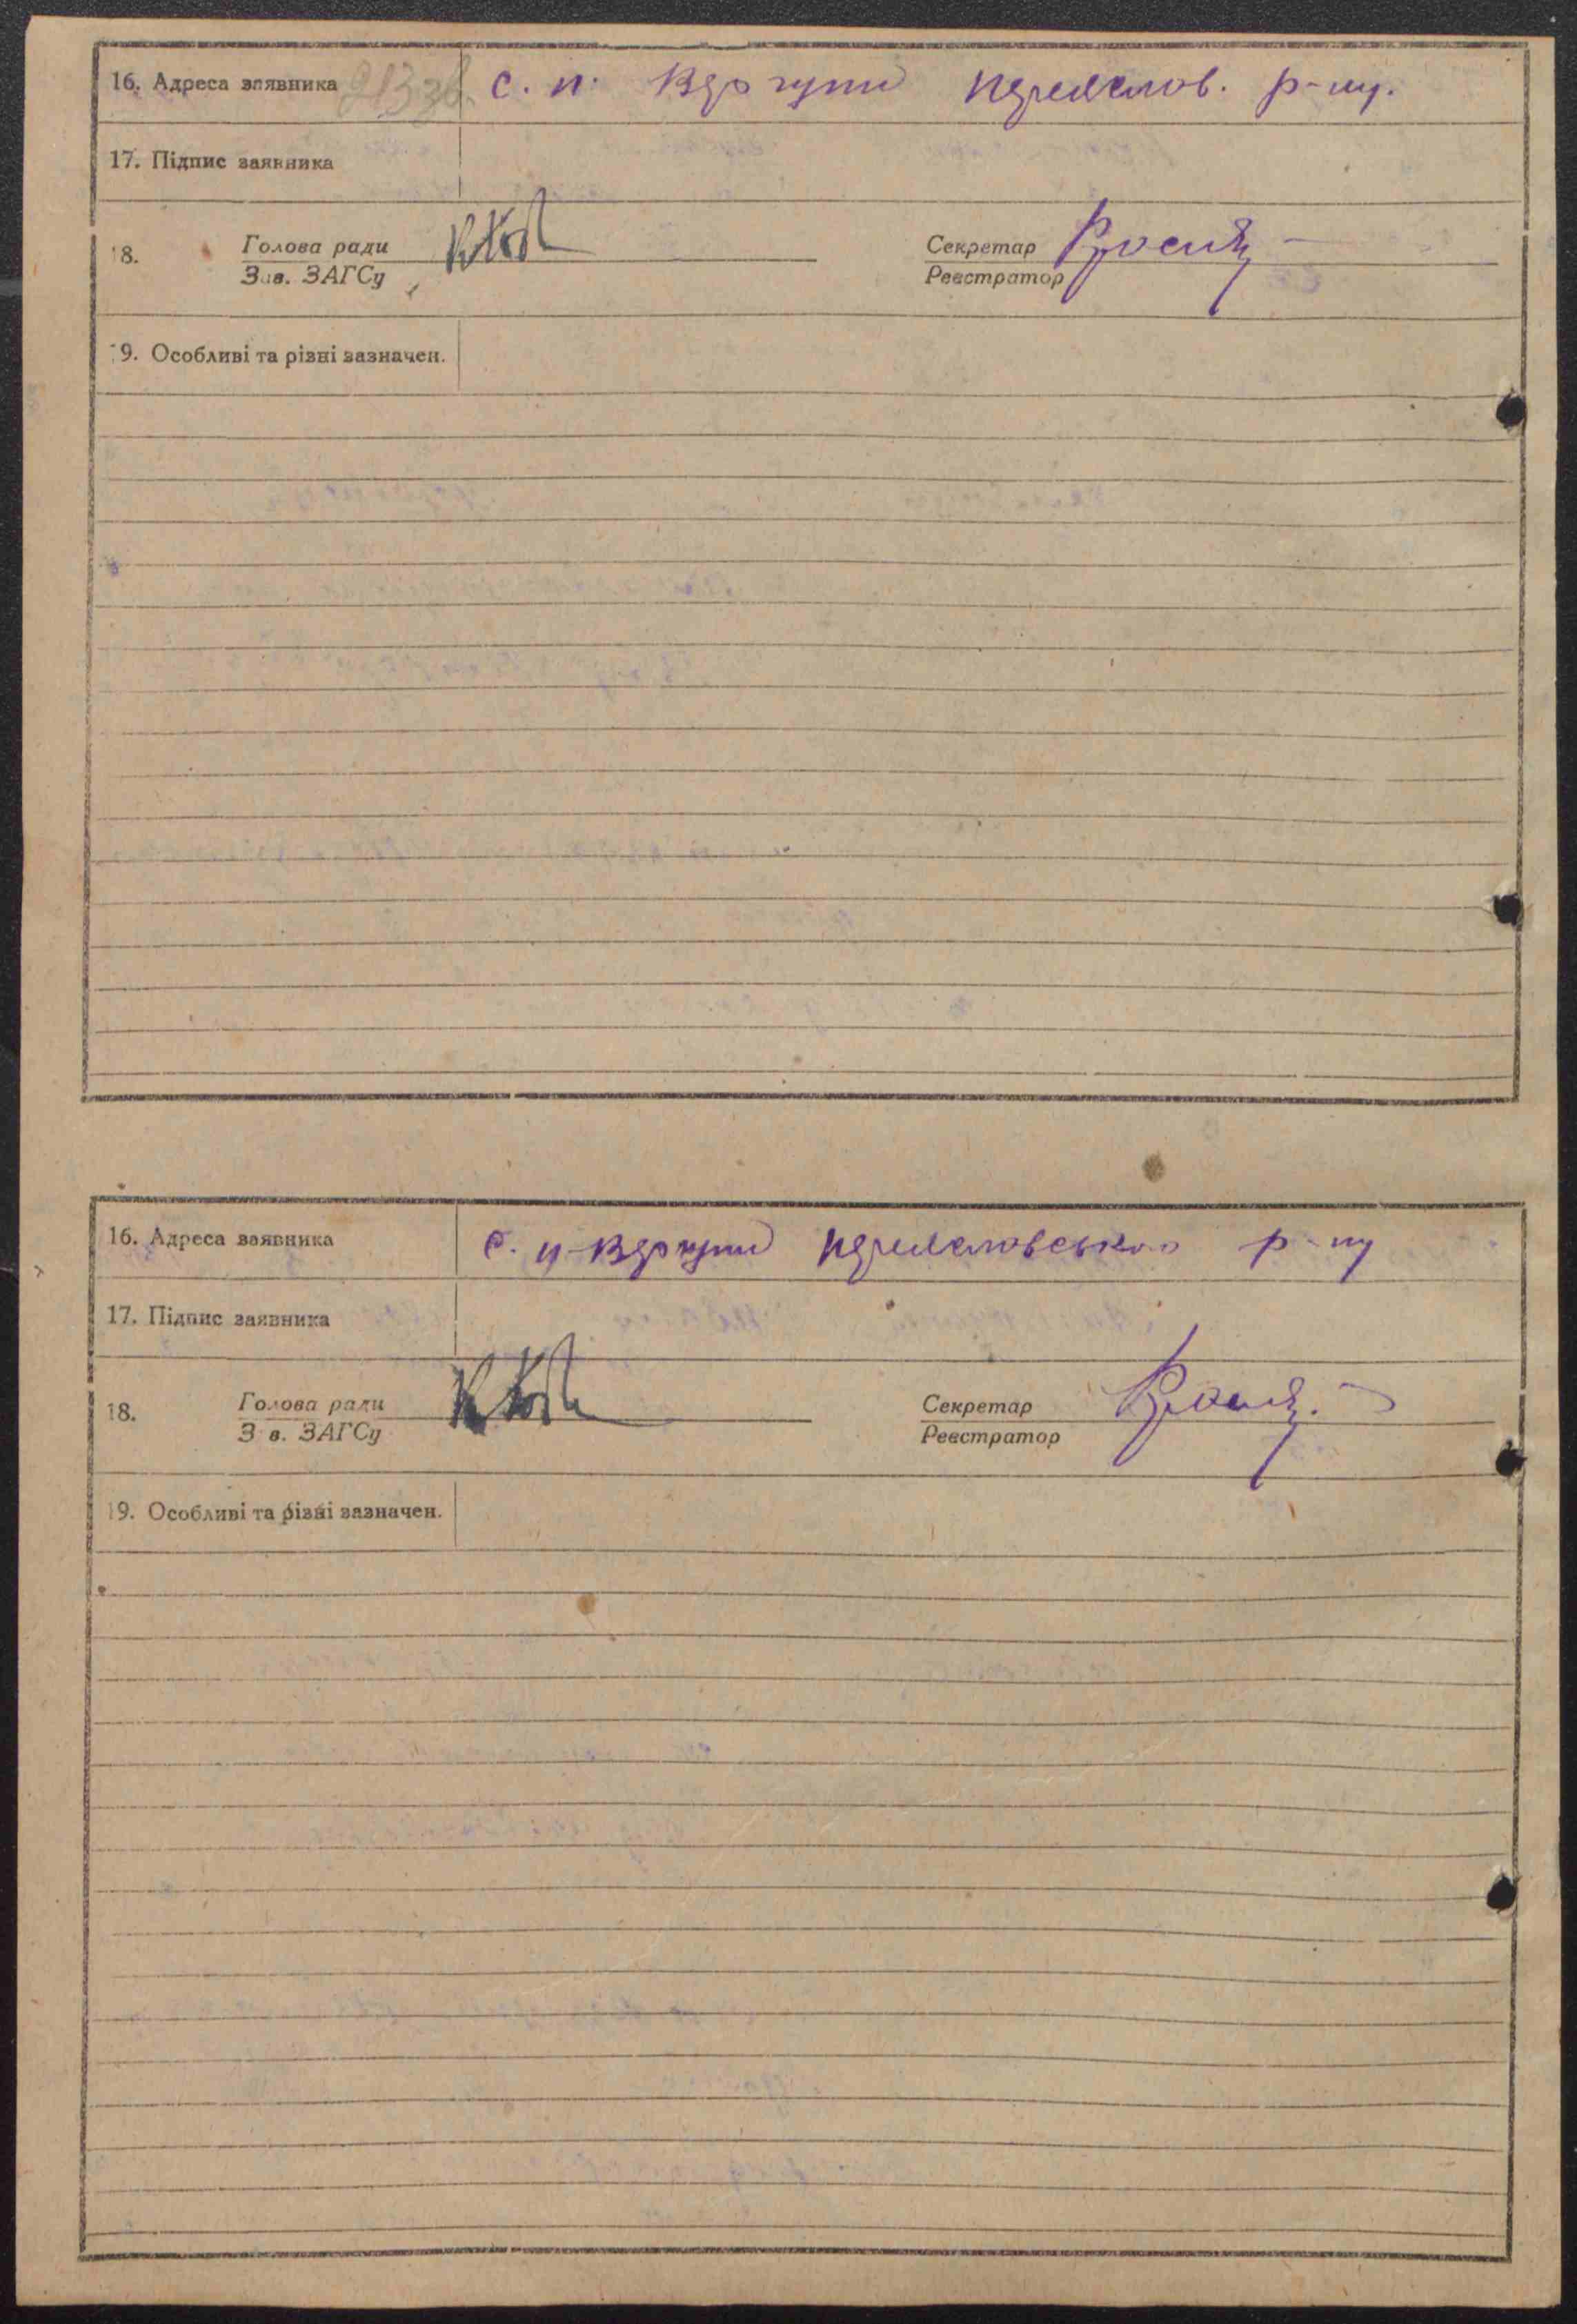 16. Адреса заявника с. п. Вергуни Переяслов. р-ну.
17. Підпис заявника
18. Голова ради Секретар
Зав. ЗАГСу Реєстратор
19. Особливі та різні зазначен.
16. Адреса заявника с. п-Вергуни Переясловського р-ну
17. Підпис заявника
18. Голова ради Секретар
Зав. ЗАГСу Реєстратор
19. Особливі та різні зазначен.